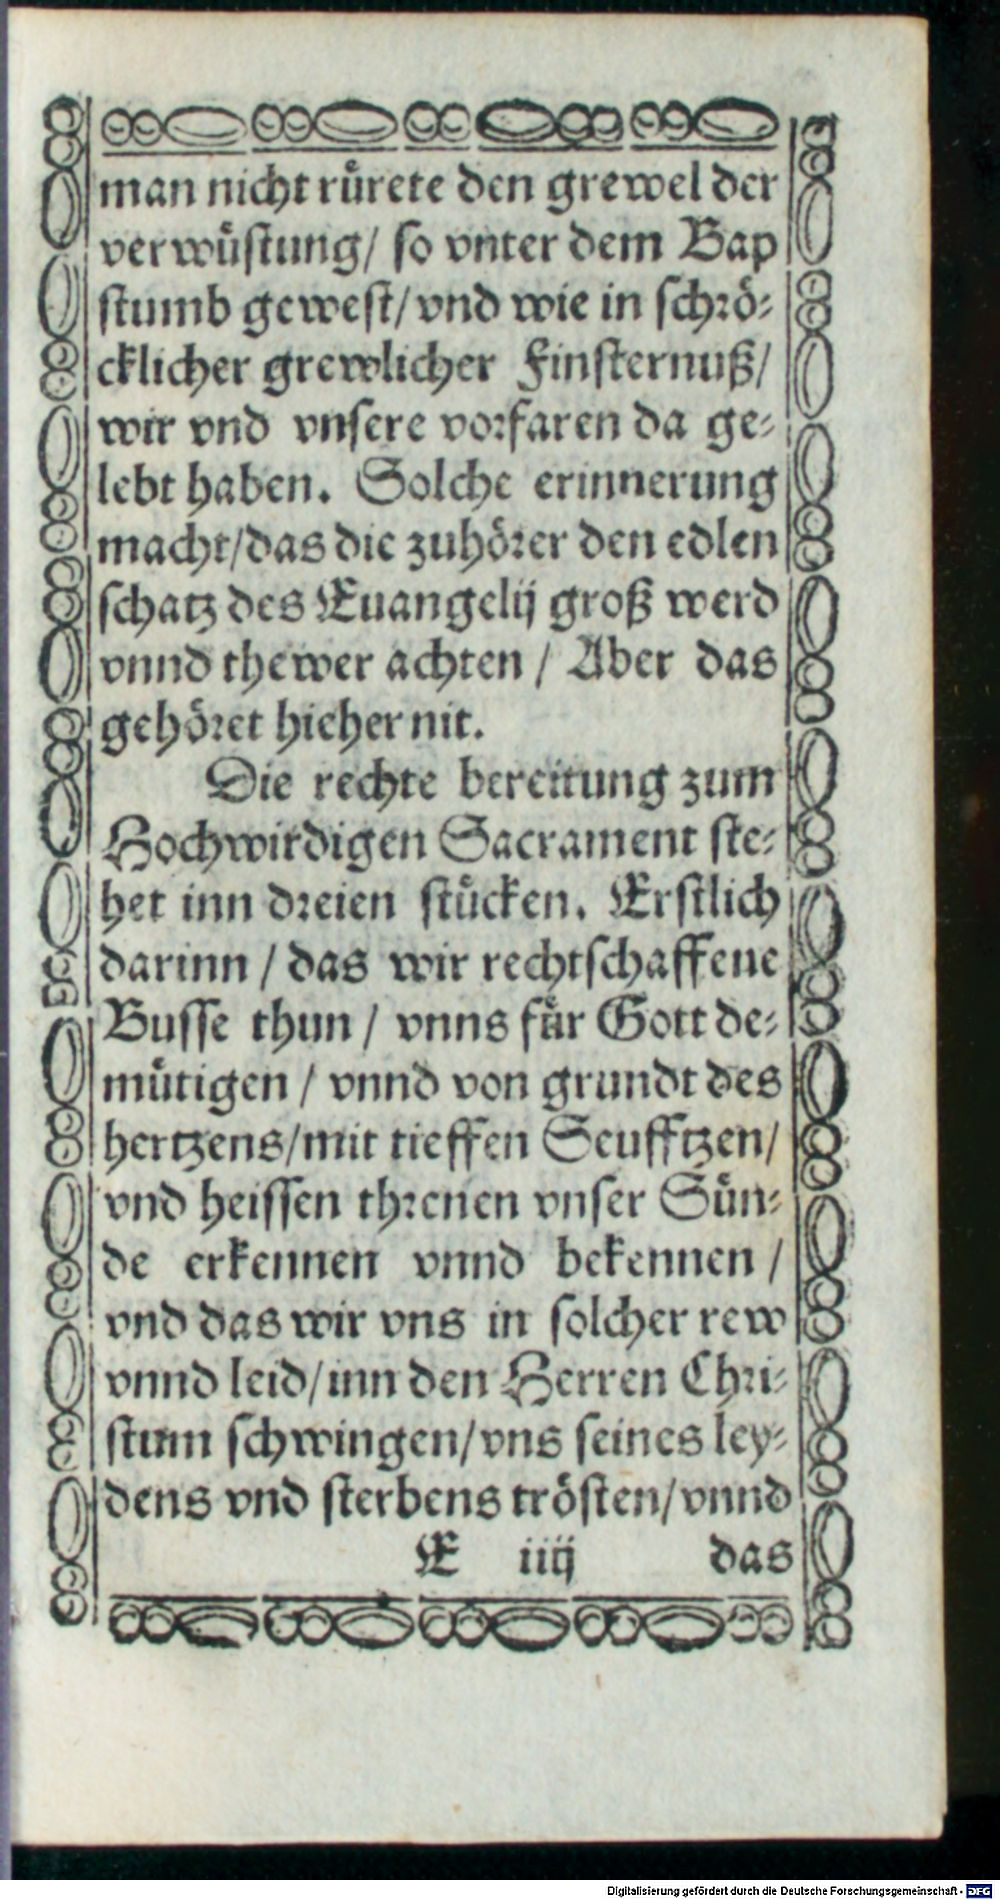 man nicht rürete den grewel der
verwüstung/ so vnter dem Bap
stumb gewest/ vnd wie in schrö-
cklicher grewlicher Finsternuß/
wir vnd vnsere vorfaren da ge-
lebt haben. Solche erinnerung
macht/das die zuhörer den edlen
schatz des Euangelij groß werd
vnnd thewer achten / Aber das
gehöret hieher nit.
Die rechte bereitung zum
Hochwirdigen Sacrament ste-
het inn dreien stücken. Erstlich
darinn / das wir rechtschaffene
Busse thun / vnns für Gott de-
mütigen / vnnd von grundt des
hertzens/mit tieffen Seufftzen/
vnd heissen threnen vnser Sün-
de erkennen vnnd bekennen /
vnd das wir vns in solcher rew
vnnd leid/inn den Herren Chri-
stum schwingen/vns seines ley-
dens vnd sterbens trösten/vnnd
E iiij das
Digitalisierung gefördert durch die Deutsche Forschungsgemeinschaft - DFG